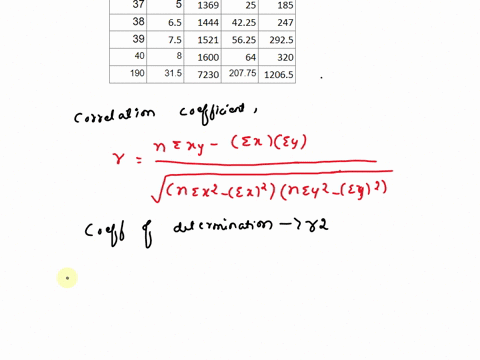 37 5 1369 25 185
38 6.5 1444 42.25 247
39 7.5 1521 56.25 292.5
40 8 1600 64 320
190 31.5 7230 207.75 1206.5
Correlation coefficient,
r = n Σxy - (Σx)(Σy)
√(nΣx2-(Σx)2)(nΣy2-(Σy)2)
Coeff of determination → r2